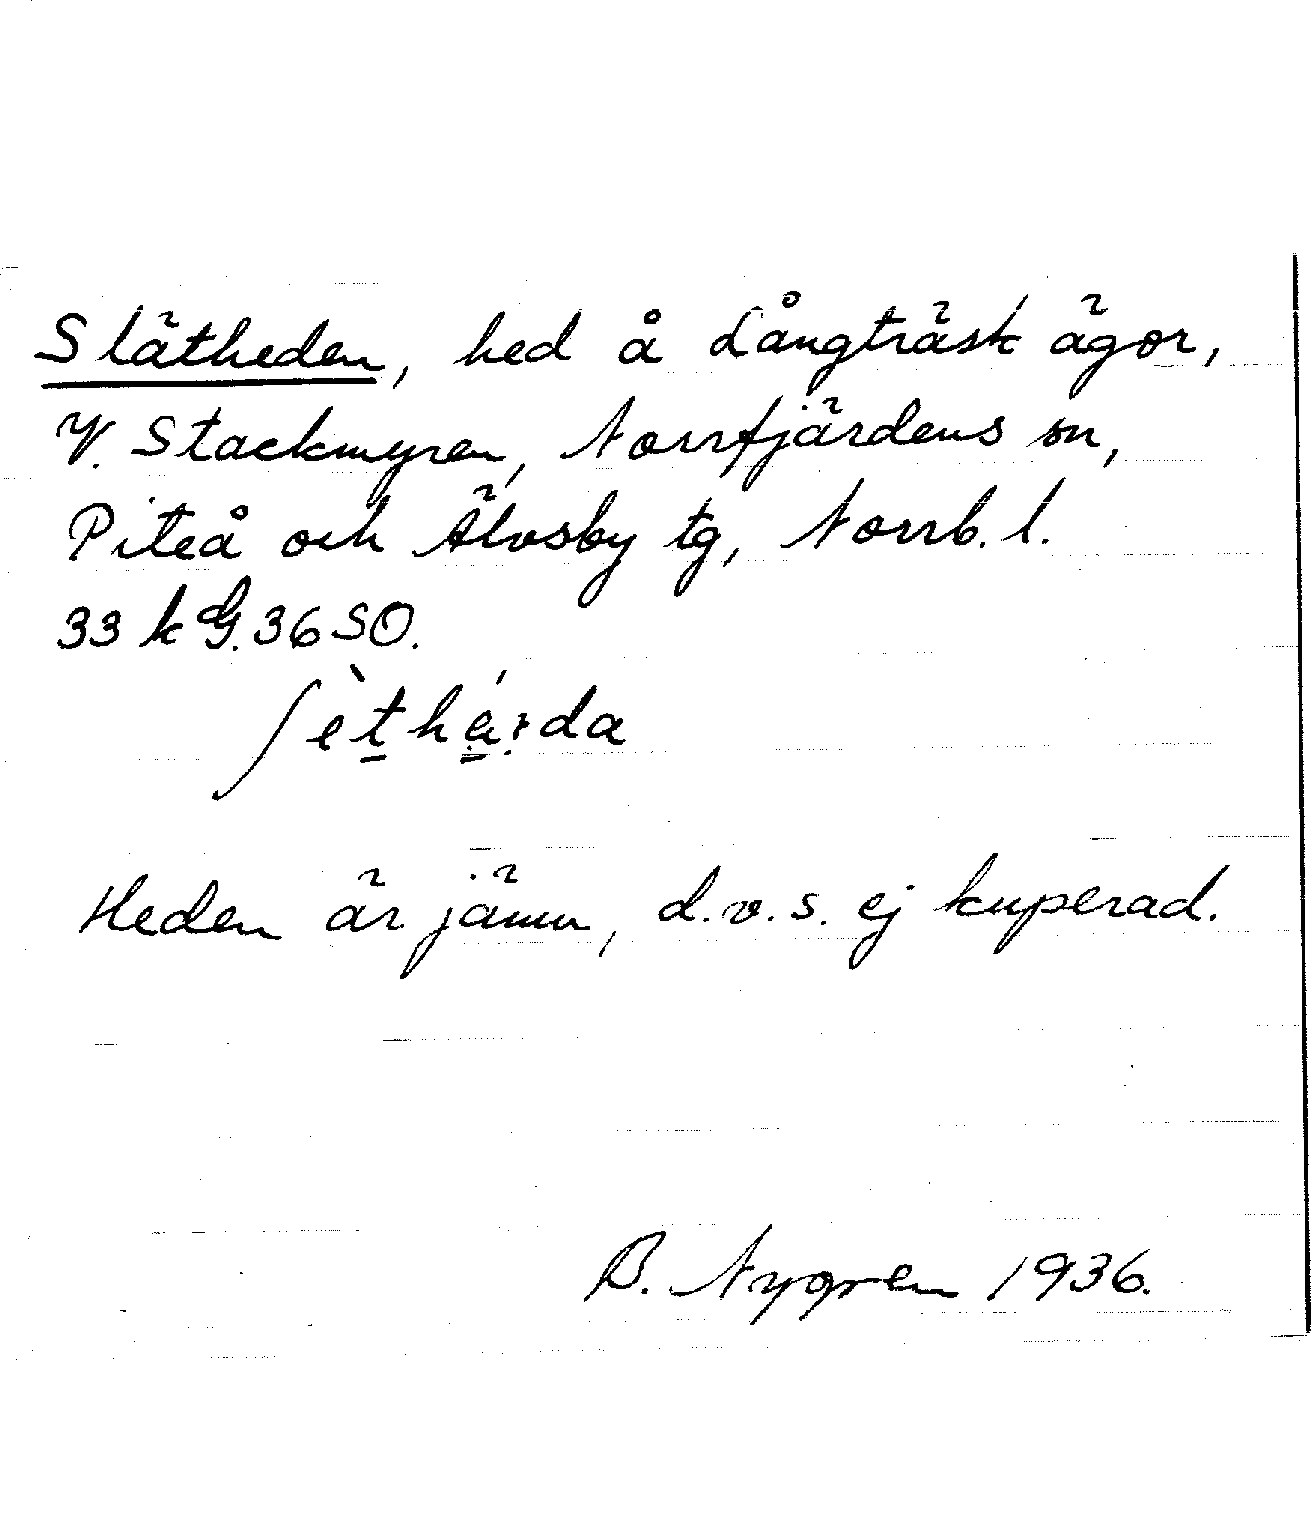 Slätheden, hed å Långträsk ägor,
V. Stackmyren, Norrfjärdens sn,
Piteå och Älvsby tg, Norrb. l.
33 k G. 36 SO.
ʃèthá:da
Heden är jämn, d.v.s. ej kuperad.
B. Nygren 1936.